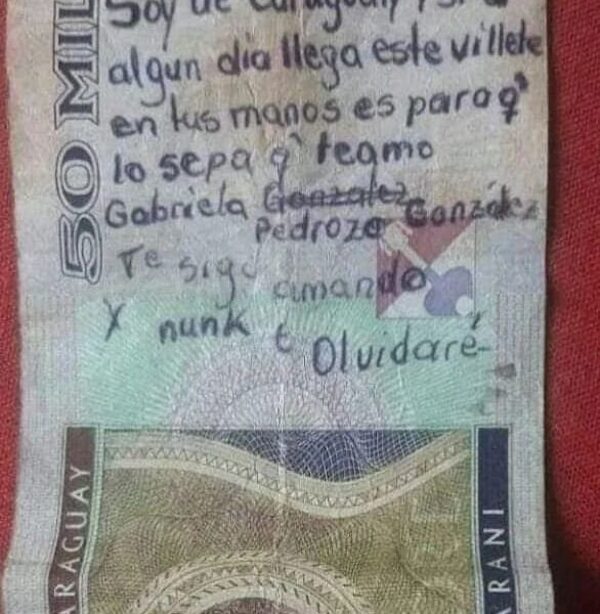 Soy de Curuguaty, si
algun dia llega este villete
en tus manos es para q'
lo sepa q' teamo
Gabriela Gonzalez
Pedrozo González
Te sigo amando
X nunk t Olvidaré-
50 MIL
ARAGUAY
RANI